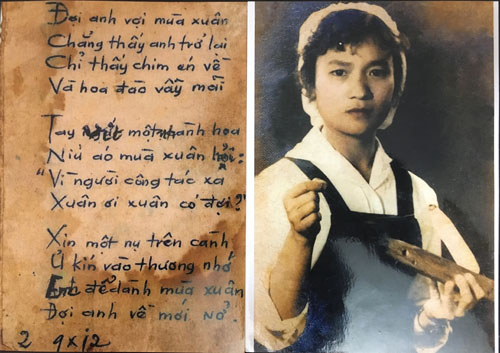 Đợi anh vợi mùa xuân
Chẳng thấy anh trở lại
Chỉ thấy chim én về
Và hoa đào vẫy mãi
Tay một nhánh hoa
Níu áo mùa xuân hỏi:
"Vì người công tác xa
Xuân ơi xuân có đợi?"
Xin một nụ trên cành
Ủ kín vào thương nhớ
để dành mùa xuân
Đợi anh về mới nở.
2 9x12